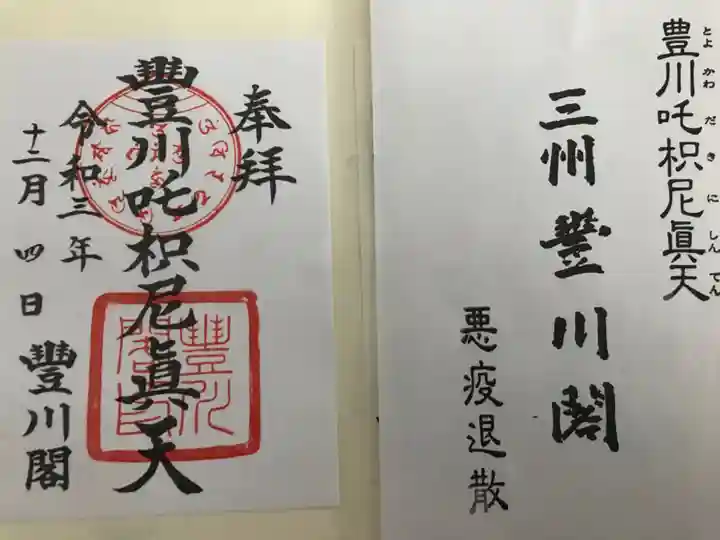 豊川吒枳尼眞天
とよかわだきにしんてん
三州豐川閣
悪疫退散
奉拜
豐川吒枳尼眞天
令和三年
十二月四日
豐川閣
豐川閣印